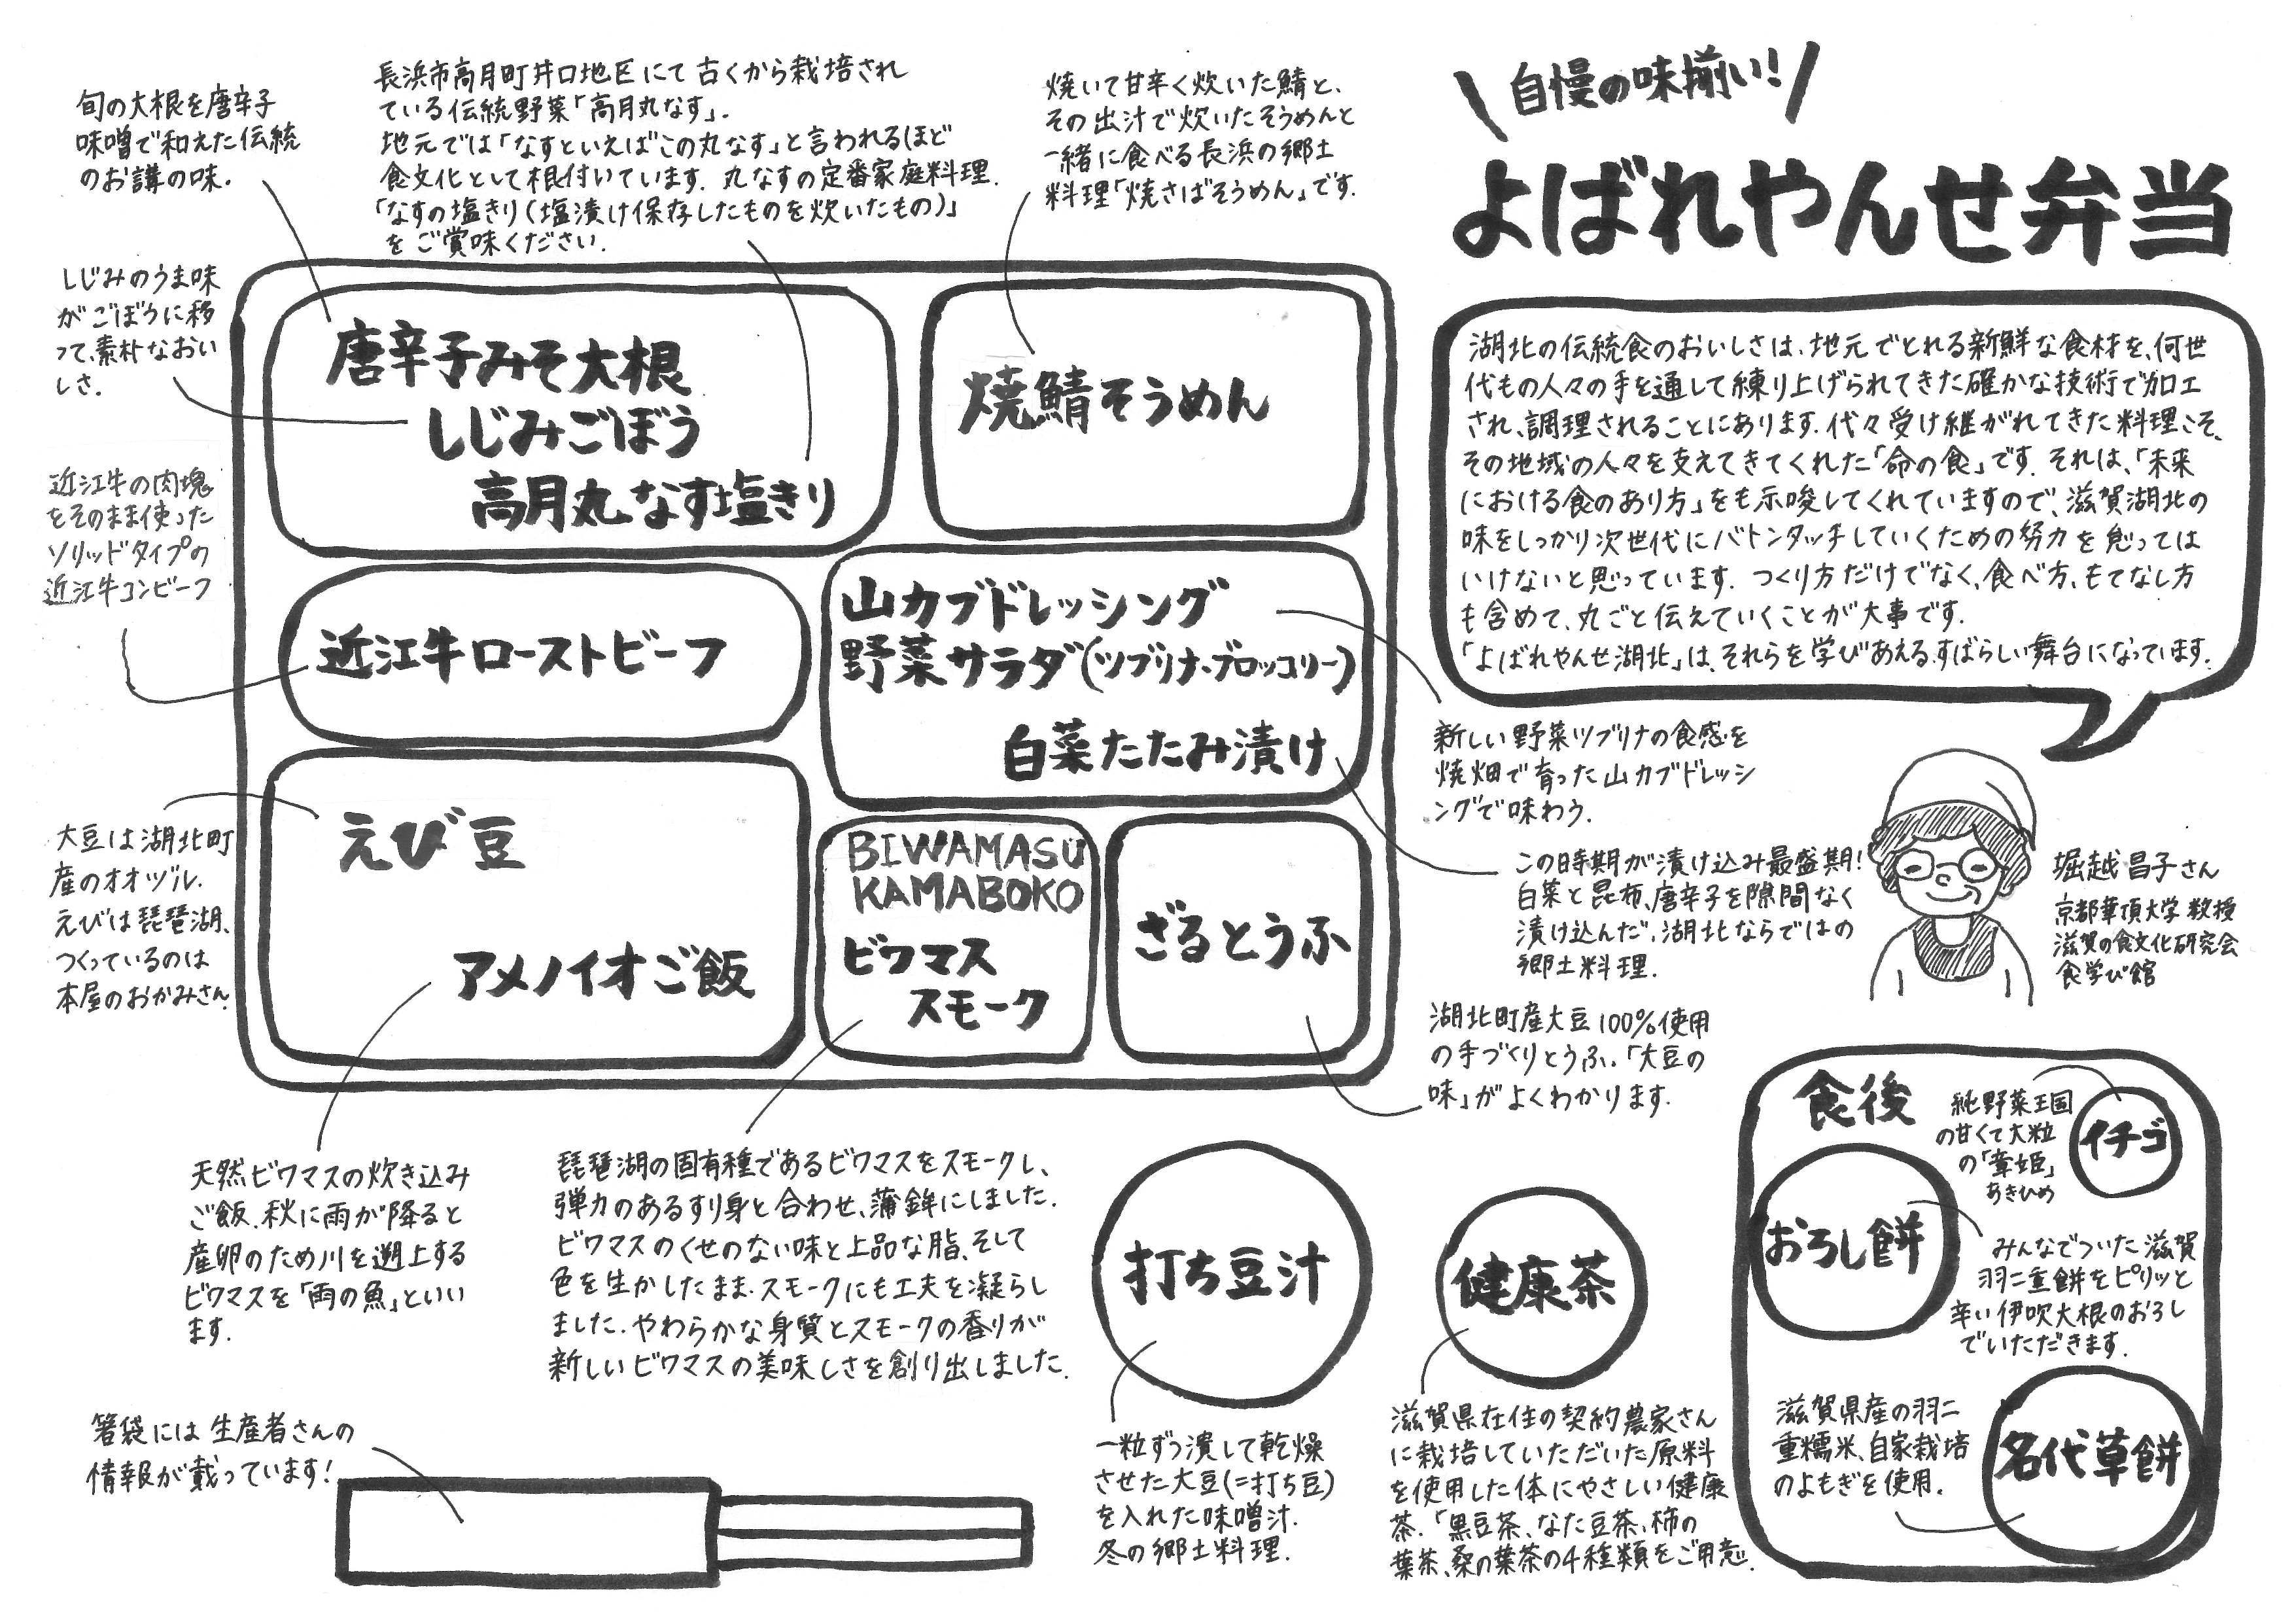 自慢の味揃い!
よばれやんせ弁当
湖北の伝統食のおいしさは、地元でとれる新鮮な食材を、何世
代もの人々の手を通して練り上げられてきた確かな技術で加工
され、調理されることにあります。代々受け継がれてきた料理こそ、
その地域の人々を支えてきてくれた「命の食」です。それは、「未来
における食のあり方」をも示唆してくれていますので、滋賀湖北の
味をしっかり次世代にバトンタッチしていくための努力を怠っては
いけないと思っています。つくり方だけでなく、食べ方、もてなし方
も含めて、丸ごと伝えていくことが大事です。
「よばれやんせ湖北」は、それらを学びあえる、すばらしい舞台になっています。
堀越昌子さん
京都華頂大学教授
滋賀の食文化研究会
食学び館
旬の大根を唐辛子
味噌で和えた伝統
のお講の味。
長浜市高月町井口地区にて古くから栽培され
ている伝統野菜「高月丸なす」。
地元では「なすといえばこの丸なす」と言われるほど
食文化として根付いています。丸なすの定番家庭料理。
「なすの塩きり(塩漬け保存したものを炊いたもの)」
をご賞味ください。
焼いて甘辛く炊いた鯖と、
その出汁で炊いたそうめんと
一緒に食べる長浜の郷土
料理「焼さばそうめん」です。
しじみのうま味
がごぼうに移
って、素朴なおい
しさ。
唐辛子みそ大根
しじみごぼう
高月丸なす塩きり
焼鯖そうめん
近江牛の肉塊
をそのまま使った
ソリッドタイプの
近江牛コンビーフ
近江牛ローストビーフ
山カブドレッシング
野菜サラダ(ツブリナ・ブロッコリー)
白菜たたみ漬け
新しい野菜ツブリナの食感を
焼畑で育った山カブドレッシ
ングで味わう。
この時期が漬け込み最盛期!
白菜と昆布、唐辛子を隙間なく
漬け込んだ、湖北ならではの
郷土料理。
大豆は湖北町
産のオオツル。
えびは琵琶湖、
つくっているのは
本屋のおかみさん。
えび豆
アメノイオご飯
BIWAMASU
KAMABOKO
ビワマス
スモーク
ざるとうふ
湖北町産大豆100%使用
の手づくりとうふ。「大豆の
味」がよくわかります。
天然ビワマスの炊き込み
ご飯。秋に雨が降ると
産卵のため川を遡上する
ビワマスを「雨の魚」といい
ます。
琵琶湖の固有種であるビワマスをスモークし、
弾力のあるすり身と合わせ、蒲鉾にしました。
ビワマスのくせのない味と上品な脂、そして
色を生かしたまま、スモークにも工夫を凝らし
ました。やわらかな身質とスモークの香りが
新しいビワマスの美味しさを創り出しました。
打ち豆汁
一粒ずつ潰して乾燥
させた大豆(=打ち豆)
を入れた味噌汁。
冬の郷土料理。
健康茶
滋賀県在住の契約農家さん
に栽培していただいた原料
を使用した体にやさしい健康
茶。「黒豆茶、なた豆茶、柿の
葉茶、桑の葉茶の4種類をご用意。
食後
純野菜王国
の甘くて大粒
の「章姫」
あきひめ
イチゴ
おろし餅
みんなでついた滋賀
羽二重餅をピリッと
辛い伊吹大根のおろし
でいただきます。
滋賀県産の羽二
重糯米、自家栽培
のよもぎを使用。
名代草餅
箸袋には生産者さんの
情報が載っています!